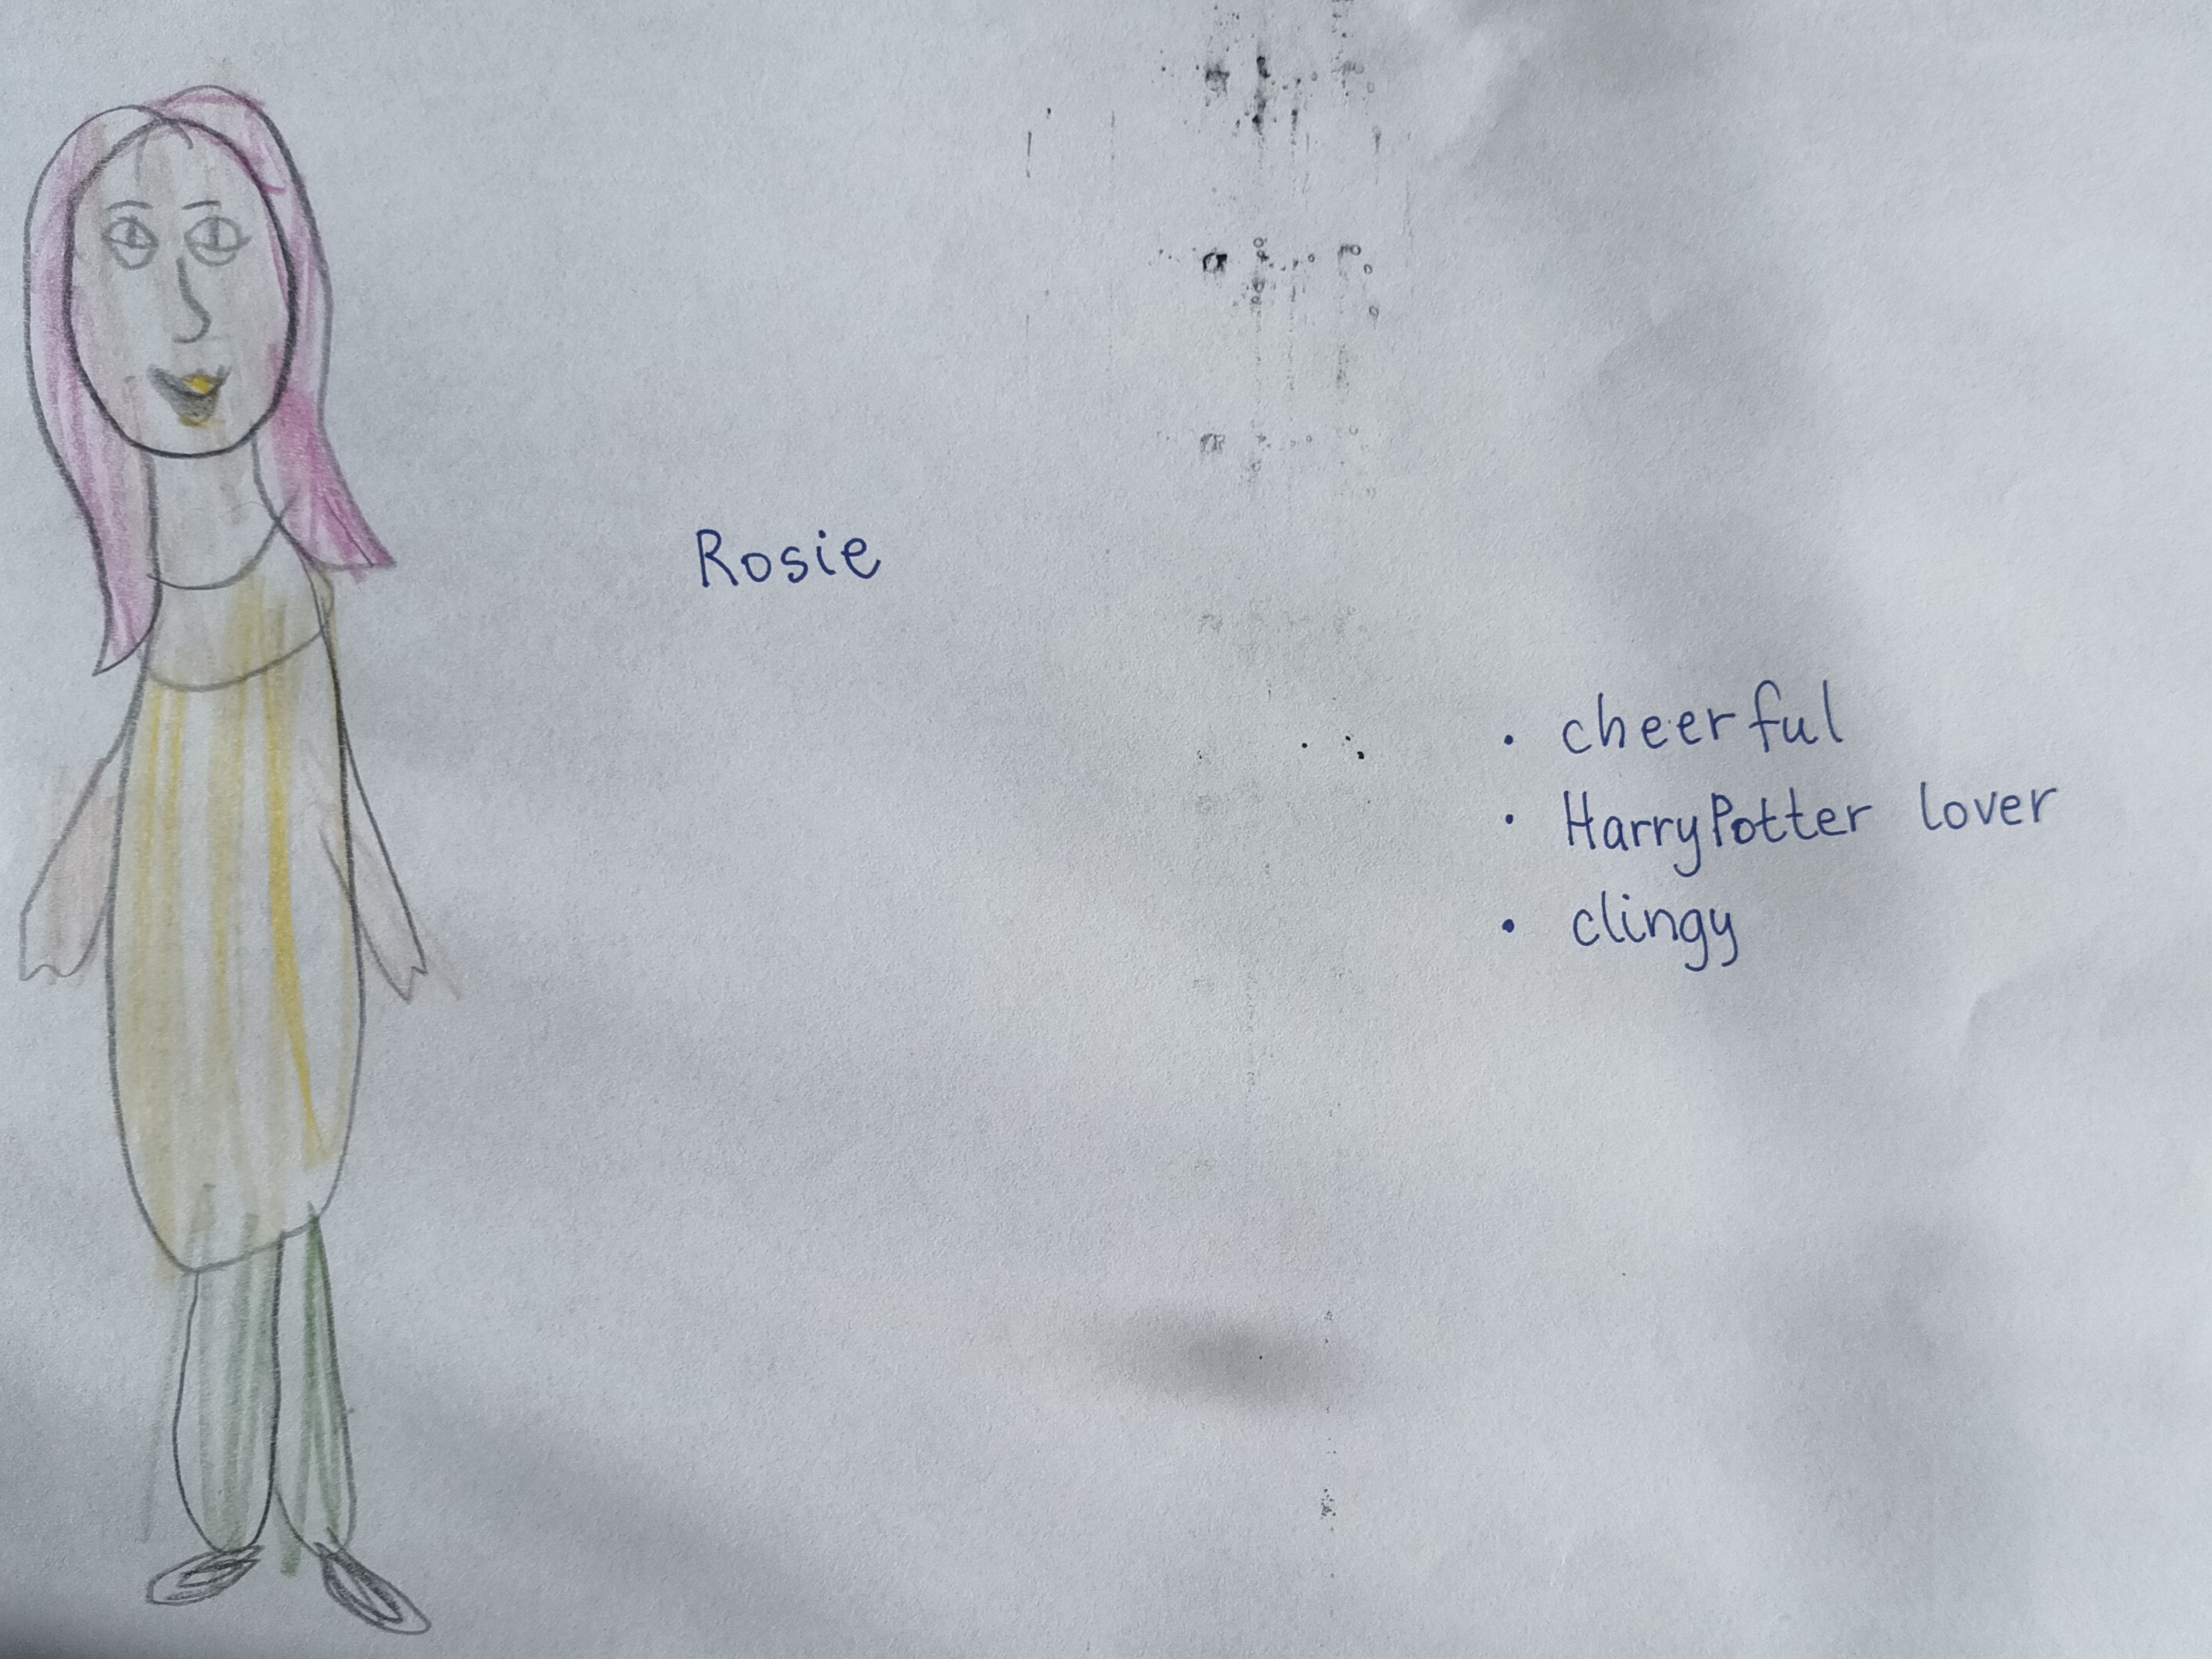 Rosie
• cheerful
• HarryPotter lover
• clingy